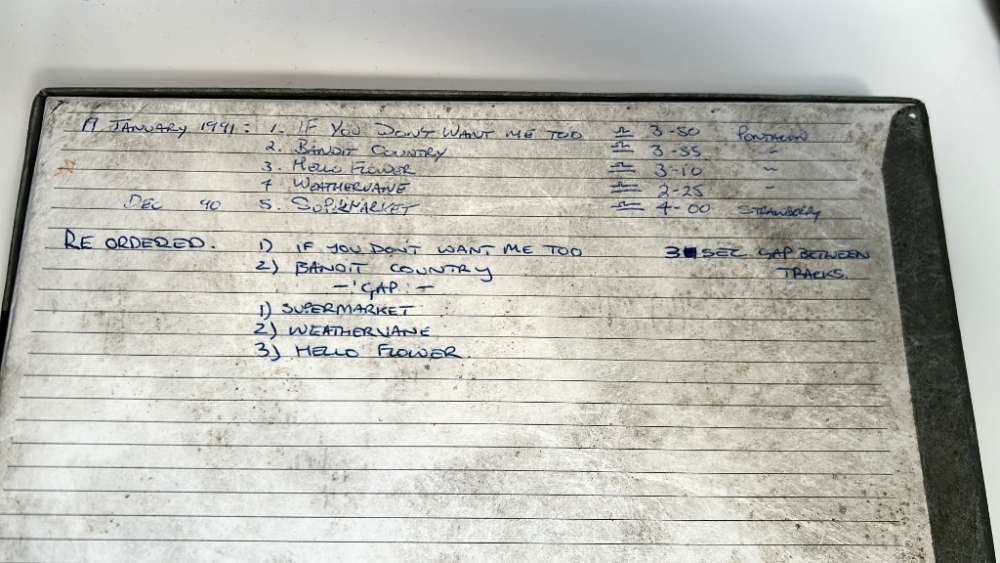 A JANUARY 1991: 1. IF YOU DON'T WANT ME TOO 3-50
2. BANDIT COUNTRY 3-55 "
3. HELLO FLOWER 3-10 "
4 WEATHERVANE 2-25 "
DEC 90 5. SUPERMARKET 4-00 STRAWBERRY
RE ORDERED. 1) IF YOU DON'T WANT ME TOO 3 SEC GAP BETWEEN
2) BANDIT COUNTRY TRACKS.
- 'GAP' -
1) SUPERMARKET
2) WEATHERVANE
3) HELLO FLOWER.